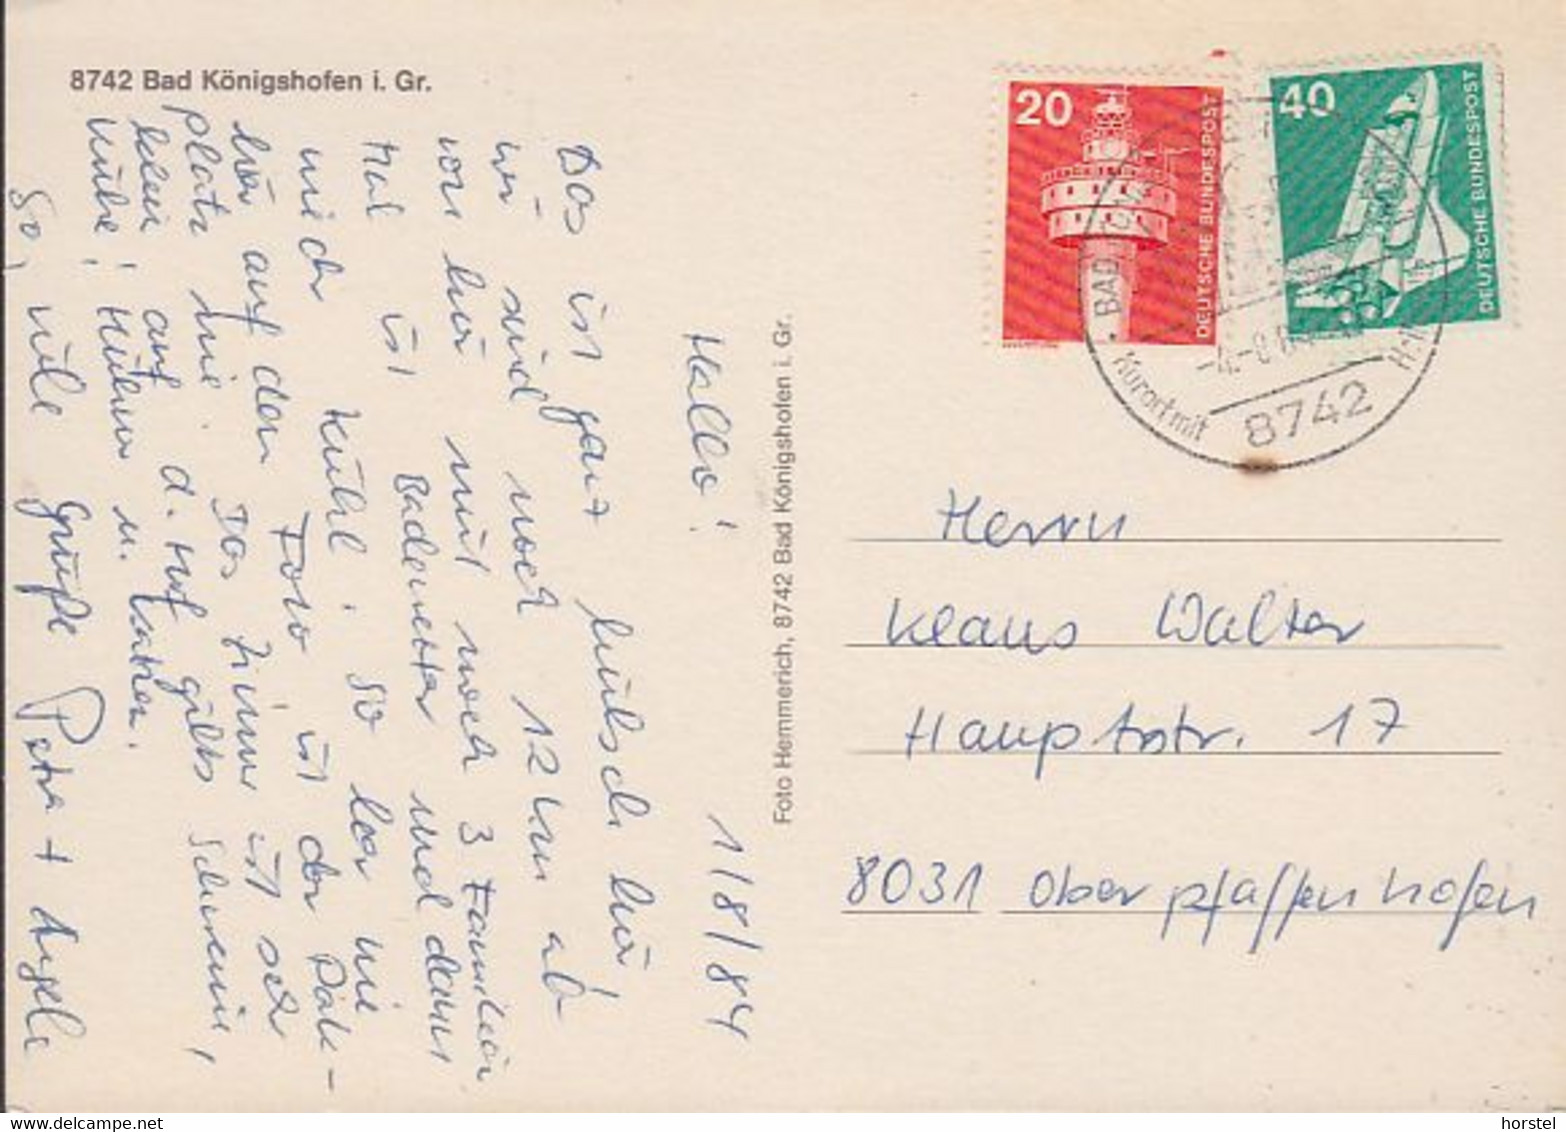 8742 Bad Königshofen i. Gr.
Hallo! 1/8/84
Das ist ganz hübsch hier!
wir sind noch 12 km ab
von hier mit noch 3 Familien
Mal ist Badewetter und dann
wieder kühl. So leer wie
hier auf dem Foto ist der Park-
platz nie. Das Zimmer ist sehr
klein, auf d. Hof gibts Schweine,
Kühe, Hühner u. Katzen.
So, viele Grüße Petra + Angela
Foto Hemmerich, 8742 Bad Königshofen i. Gr.
20
DEUTSCHE BUNDESPOST
40
DEUTSCHE BUNDESPOST
BAD
Kurort mit
8742
Herrn
Klaus Walter
Hauptstr. 17
8031 Oberpfaffenhofen
horstel